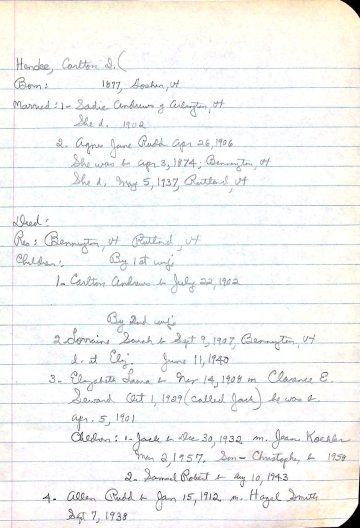 Hendee, Carlton D. (
Born: 1877, Goshen, Vt
Married: 1- Sadie Andrews of Arlington, Vt
She d. 1902
2. Agnes Jane Rudd Apr 26, 1906
She was b Apr 3, 1874, Bennington, Vt
She d. May 5, 1937, Rutland, Vt
Died:
Res: Bennington, Vt Rutland, Vt
Children: By 1st wife
1- Carlton Andrews b July 22, 1902
By 2nd wife
2. Lorraine Sarah b Sept 9, 1907, Bennington, Vt
d. at June 11, 1940
3- Elizabeth b Nov 14, 1908 m Clarence E.
Seward Oct 1, 1929 (called Jack) he was b
Apr. 5, 1901
Children: 1- Jack b Dec 30, 1932 m. Jean Koehler
Mar 2, 1957. Son - Christopher b 1958
2- Samuel Robert b Aug 10, 1943
4- Allen Rudd b Jan 15, 1912 m. Hazel Smith
Sept 7, 1938